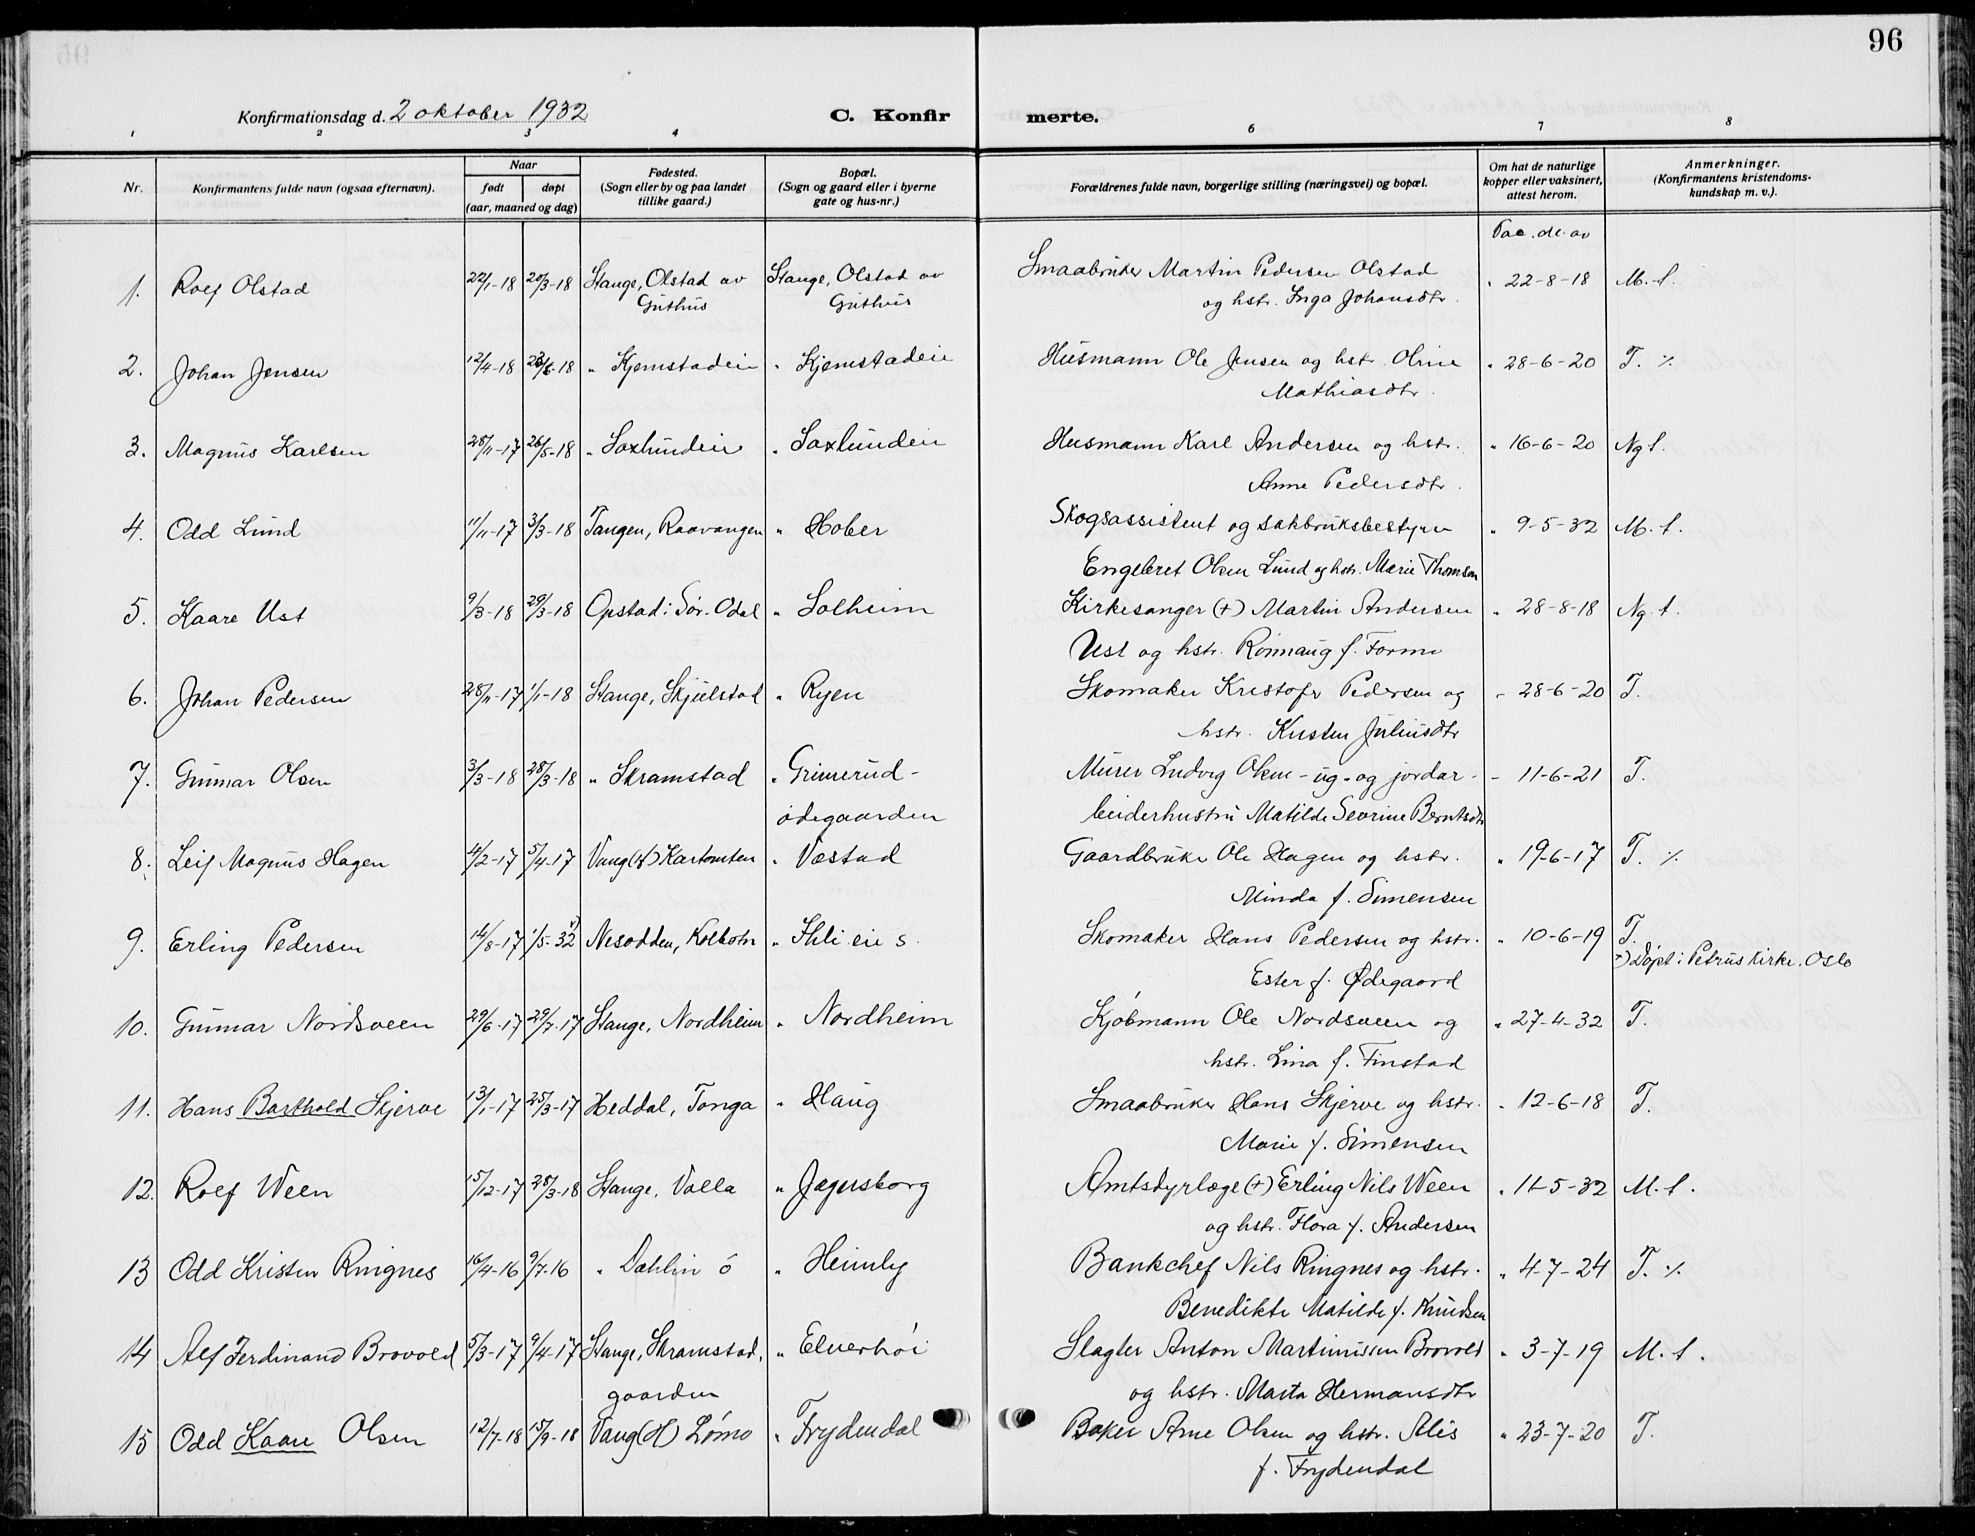 96
Konfirmationsdag d. 2 oktober 1932
C. Konfir merte.
1 2 3 4 6 7 8
Nr.
Konfirmantens fulde navn (ogsaa efternavn).
Naar
født døpt
(aar, maaned og dag)
Fødested.
(Sogn eller by og paa landet
tillike gaard.)
Bopæl.
(Sogn og gaard eller i byerne
gate og hus-nr.)
Forældrenes fulde navn, borgerlige stilling (næringsvei) og bopæl.
Om hat de naturlige
kopper eller vaksinert,
attest herom.
Anmerkninger.
(Konfirmantens kristendoms-
kundskap m. v.).
1. Rolf Olstad 22/1-18 20/3-18 Stange, Olstad av Stange, Olstad av Smaabruker Martin Pedersen Olstad " 22-8-18 M. t.
Guthus Guthus og hstr. Inga Johansdtr.
2. Johan Jensen 12/4-18 23/6-18 " Kjemstadeie " Kjemstadeie Husmann Ole Jensen og hstr. Oline " 28-6-20 T. ٪
Mathiasdtr.
3. Magnus Karlsen 28/11-17 26/5-18 " Saxlundeie " Saxlundeie Husmann Karl Andersen og hstr. " 16-6-20 Ng t.
Anne Pedersdtr.
4. Odd Lund 11/11-17 3/3-18 Tangen, Raavangen " Hober Skogsassistent og sakbruksbestyrer " 9-5-32 M. t.
Engebret Olsen Lund og hstr. Marie Thomsen
5. Kaare Ust 9/3-18 29/3-18 Opstad i Sør-Odal " Solheim Kirkesanger (+) Martin Andersen " 28-8-18 Ng. t.
Ust og hstr. Rönnaug f. Formo
6. Johan Pedersen 28/11-17 1/1-18 Stange, Skjulstad " Ryen Skomaker Kristofer Pedersen og " 28-6-20 T.
hstr. Kristen Juliusdtr
7. Gunnar Olsen 3/3-18 28/3-18 " Skramstad " Grimerud- Murer Ludvig Olsen - ug - og jordar- " 11-6-21 T.
ødegaarden beiderhustru Matilde Sevrine Berntsdtr
8. Leif Magnus Hagen 4/2-17 5/4-17 Vang (H) Kartomten " Væstad Gaardbruker Ole Hagen og hstr. " 19-6-17 T. ٪
Minda f. Simensen
9. Erling Pedersen 14/8-17 1/5-32 Nesodden, Kolbotn " Ihle eie s. Skomaker Hans Pedersen og hstr. " 10-6-19 T.
Ester f. Ødegaard *) Døpt i Petrus kirke. Oslo
10. Gunnar Nordsveen 29/6-17 29/7-17 Stange, Nordheim " Nordheim Kjøbmann Ole Nordsveen og " 27-4-32 T.
hstr. Lina f. Finstad
11. Hans Barthold Skjerve 13/1-17 25/3-17 Heddal, Tonga " Haug Smaabruker Hans Skjerve og hstr. " 12-6-18 T.
Marie f. Simensen
12. Rolf Ween 15/12-17 28/3-18 Stange, Valla " Jægersborg Amtsdyrlæge (+) Erling Nils Ween " 11-5-32 M. t.
og hstr. Flora f. Andersen
13 Odd Kristen Ringnes 16/4-16 9/7-16 " Dæhlin ø " Heimly Bankchef Nils Ringnes og hstr. " 4-7-24 T. ٪
Benedikte Matilde f. Knudsen
14 Alf Ferdinand Brovold 5/3-17 9/4-17 Stange, Skramstad, " Elverhøi Slagter Anton Martiniussen Brovold " 3-7-19 M. t.
gaarden og hstr. Marta Hermansdtr
15 Odd Kaare Olsen 12/7-18 15/9-18 Vang (H) Lømo " Frydendal Baker Arne Olsen og hstr. Alis " 23-7-20 T.
f. Frydendal